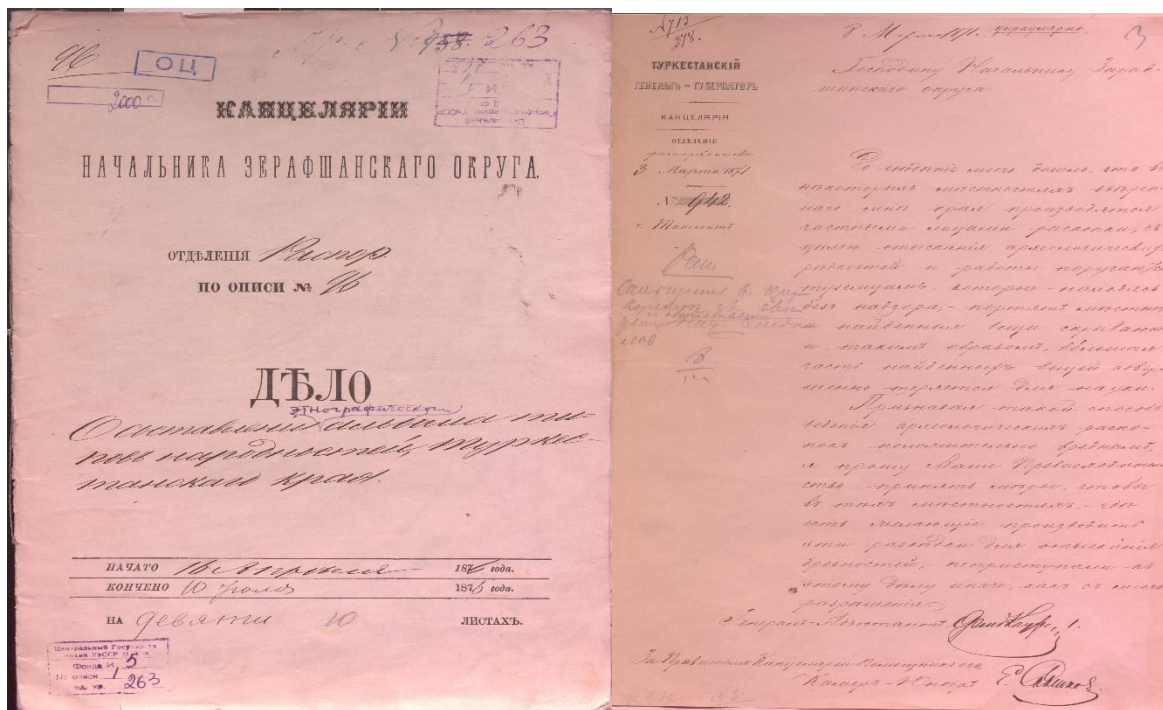 96
№ 958 263
ОЦ
2000 г.
КАНЦЕЛЯРІИ
НАЧАЛЬНИКА ЗЕРАФШАНСКАГО ОКРУГА.
ОТДѢЛЕНІЯ
ПО ОПИСИ № 96
ДѢЛО
этнографическаго
О составленіи альбома ти-
повъ народностей Туркес-
танскаго края.
НАЧАТО 16 Апрѣля 187 года.
КОНЧЕНО 10 187 года.
НА девяти 10 ЛИСТАХЪ.
Центральный Госуд
архив УзССР
Фонд И 5
№ описи 1
ед. хр. 263
№ 713
8 Марта 1871. циркулярно.
3
ТУРКЕСТАНСКІЙ
ГЕНЕРАЛЪ – ГУБЕРНАТОРЪ
КАНЦЕЛЯРІЯ
ОТДѢЛЕНІЕ
3 Марта 1871
№ 942.
г. Ташкентъ
Господину Начальнику Зарав-
шанскаго округа.
До свѣдѣнія моего дошло, что въ
некоторыхъ мѣстностяхъ ввѣрен-
наго мнѣ края производятся
частными лицами раскопки, съ
цѣлью отысканія археологическихъ
рѣдкостей и работы поручаются
туземцамъ, которые – находясь
безъ надзора, – портятъ
и найденныя вещи скрываютъ
и такимъ образомъ, большая
часть найденныхъ вещей совер-
шенно теряется для науки.
Признавая такой способъ
веденія археологическихъ раско-
покъ положительно вреднымъ,
я прошу Ваше Превосходитель-
ство принять мѣры, чтобы
въ тѣхъ мѣстностяхъ, – гдѣ
есть желающіе производить
эти раскопки для отысканія
древностей, неприступали къ
этому дѣлу иначе, какъ съ моего
разрѣшенія.
Генералъ-Лейтенантъ
За Правителя Канцеляріи Помощникъ его,
Камеръ-Юнкеръ